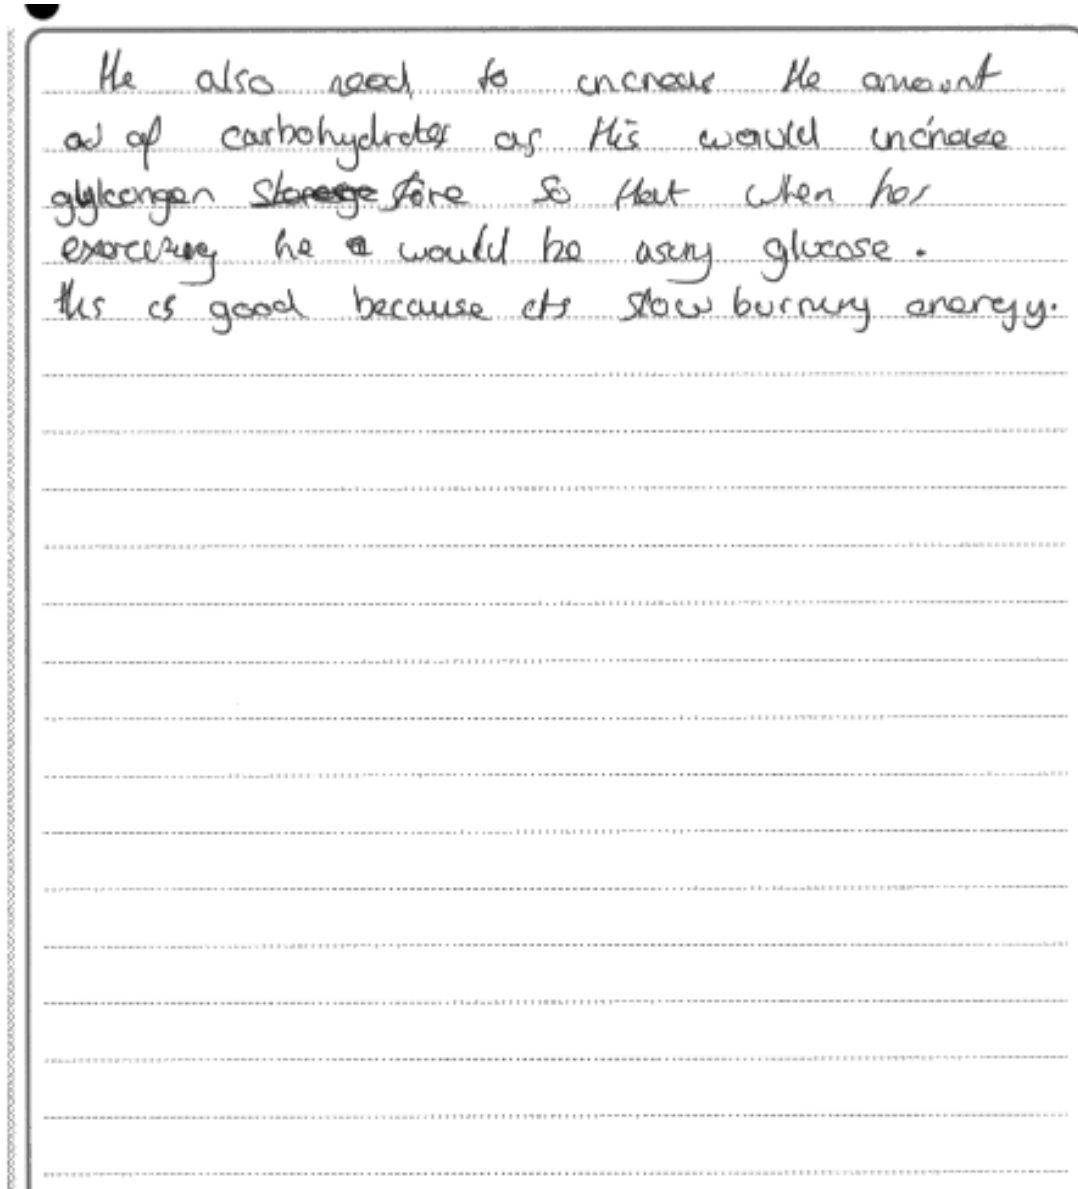 He also need to increase the amount
ad of carbohydrates as this would increase
glylcongen storage store so that when hes
exercising he would be using glucose.
this is good because its slow burning energy.